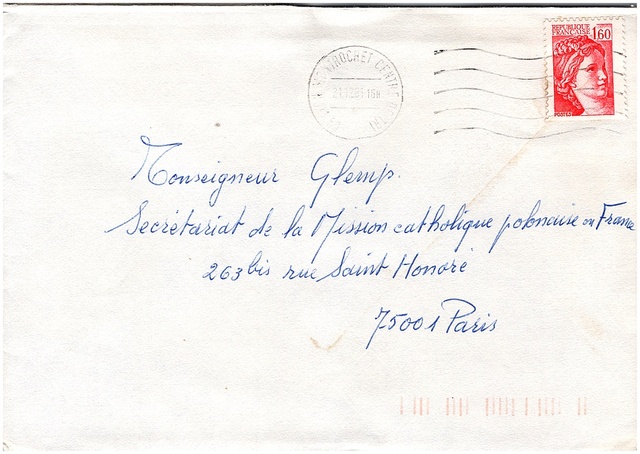 REPUBLIQUE FRANCAISE 1,60
POSTES
MONTROCHET CENTRE
21.12.81 16H
Monseigneur Glemp.
Secrétariat de la Mission catholique polonaise en France
263 bis rue Saint Honoré
75001 Paris